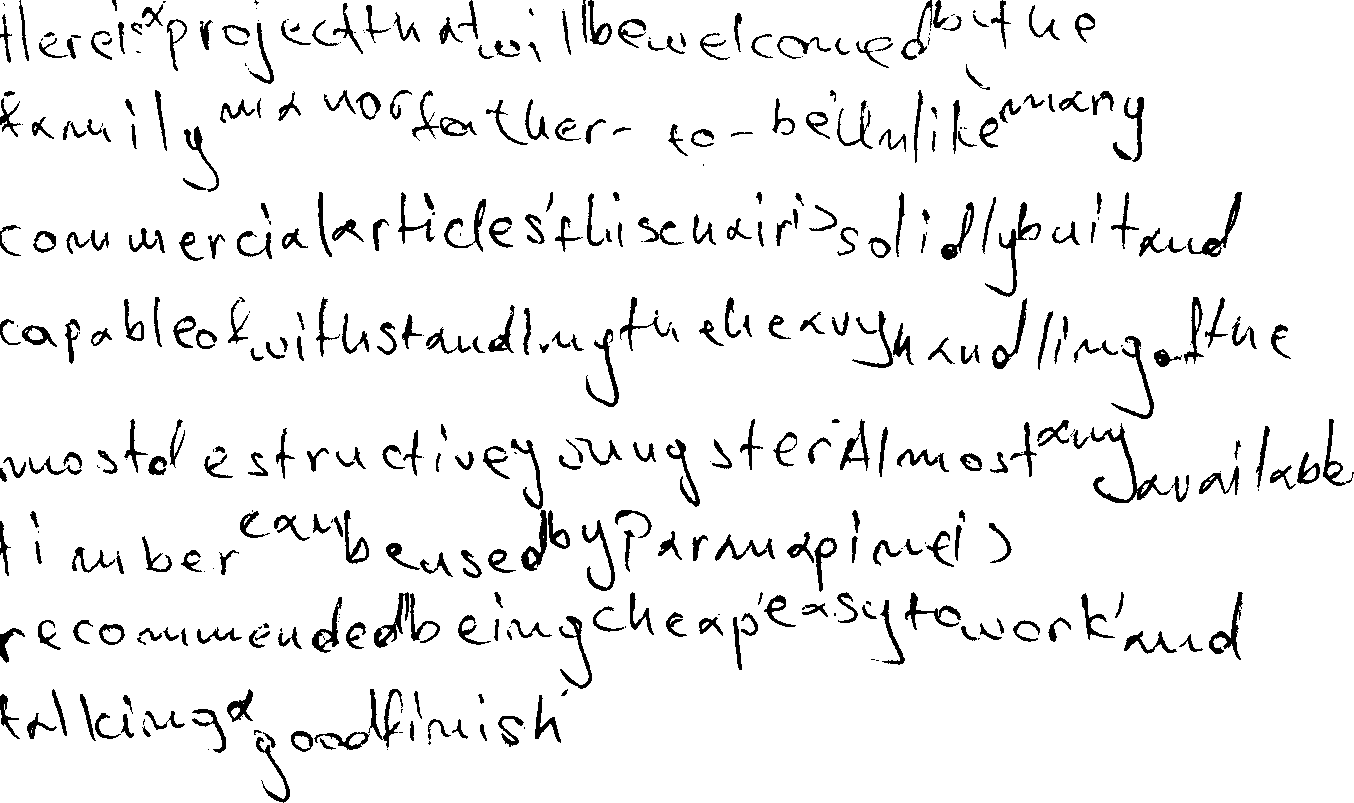 Here is a project that will be welcomed by the
family man or father-to-be. Unlike many
commercial articles, this chair is solidly built and
capable of withstanding the heavy handling of the
most destructive youngster. Almost any available
timber can be used by Parana pine is
recommended being cheap, easy to work, and
talking a good finish.